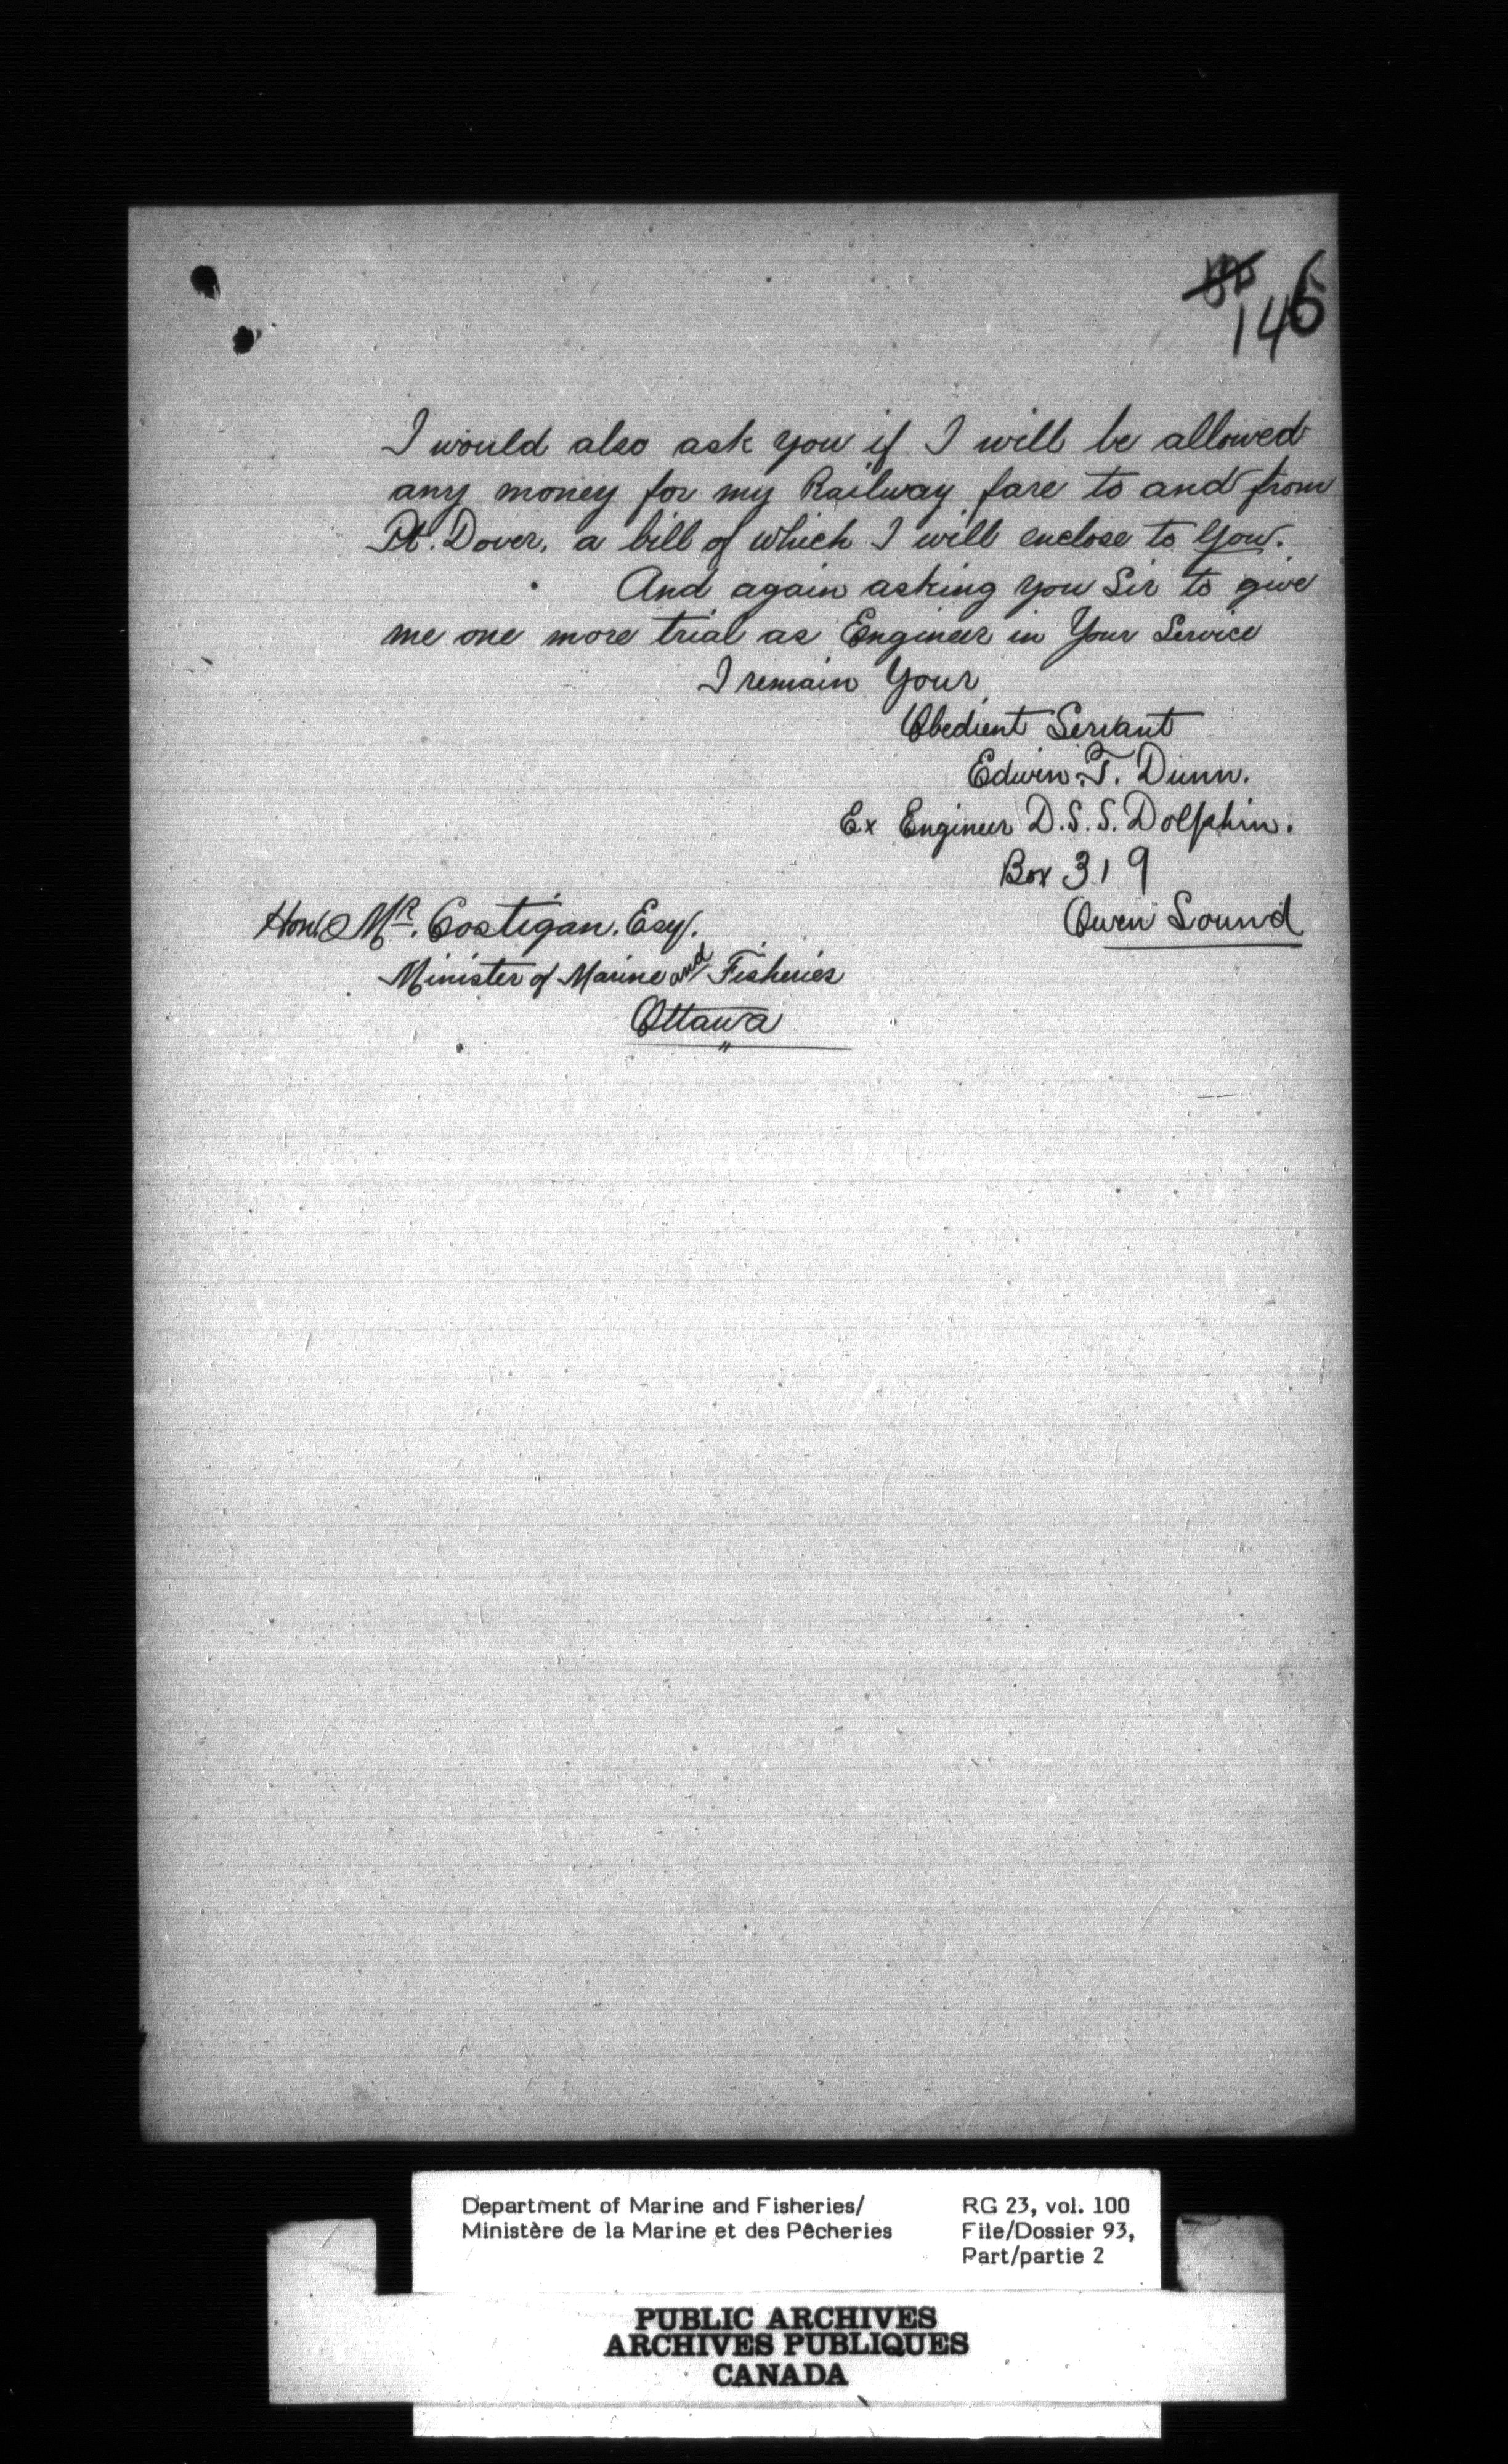 146
I would also ask you if I will be allowed
any money for my Railway fare to and from
Pt. Dover, a bill of which I will enclose to You.
And again asking you Sir to give
me one more trial as Engineer in Your Service
I remain Your
Obedient Servant
Edwin. T. Dunn.
Ex Engineer D.S.S. Dolphin.
Box 319
Owen Sound
Honble Mr. Costigan. Esq.
Minister of Marine and Fisheries
Ottawa
Department of Marine and Fisheries/
Ministère de la Marine et des Pêcheries
RG 23, vol. 100
File/Dossier 93,
Part/partie 2
PUBLIC ARCHIVES
ARCHIVES PUBLIQUES
CANADA